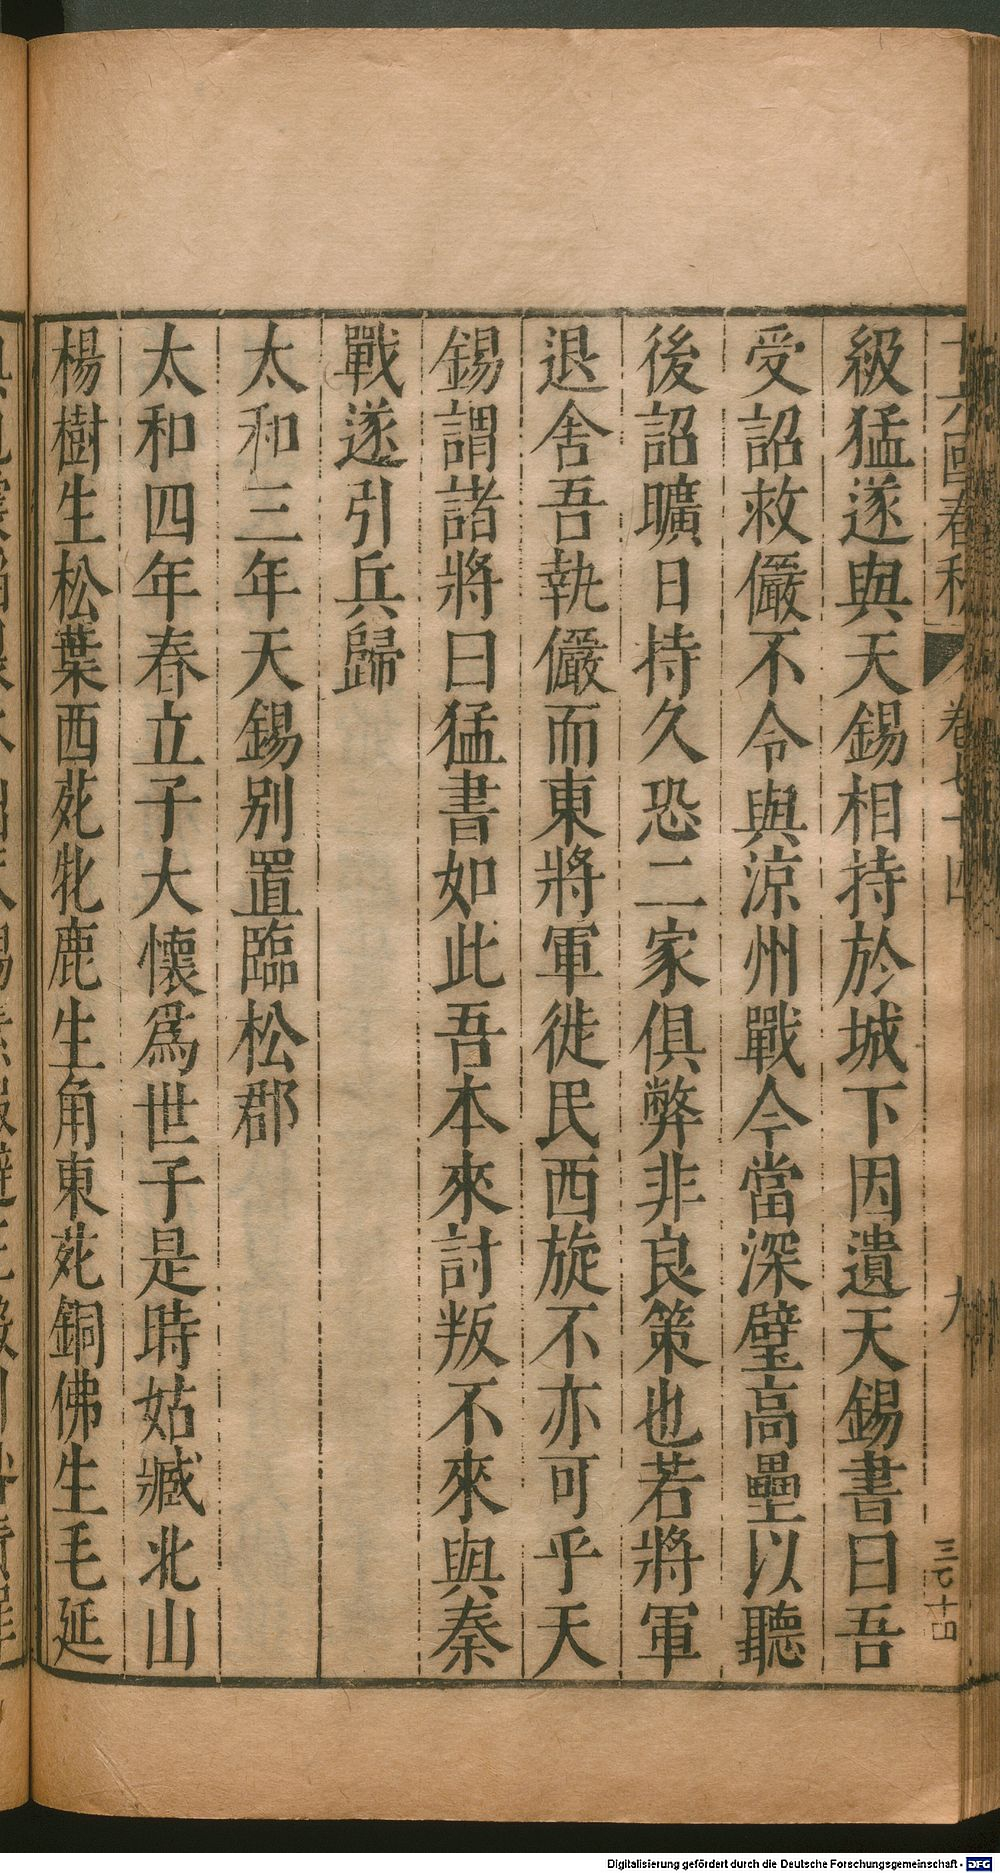 級猛遂與天錫相持於城下因遺天錫書曰吾
受詔救儼不令與涼州戰今當深壁高壘以聽
後詔曠日持久恐二家俱弊非良策也若將軍
退舍吾執儼而東將軍徙民西旋不亦可乎天
錫謂諸將曰猛書如此吾本來討叛不來與秦
戰遂引兵歸
太和三年天錫别置臨松郡
太和四年春立子大懷爲世子是時姑臧北山
楊樹生松葉西苑牝鹿生角東苑銅佛生毛延
Digitalisierung gefördert durch die Deutsche Forschungsgemeinschaft - DFG